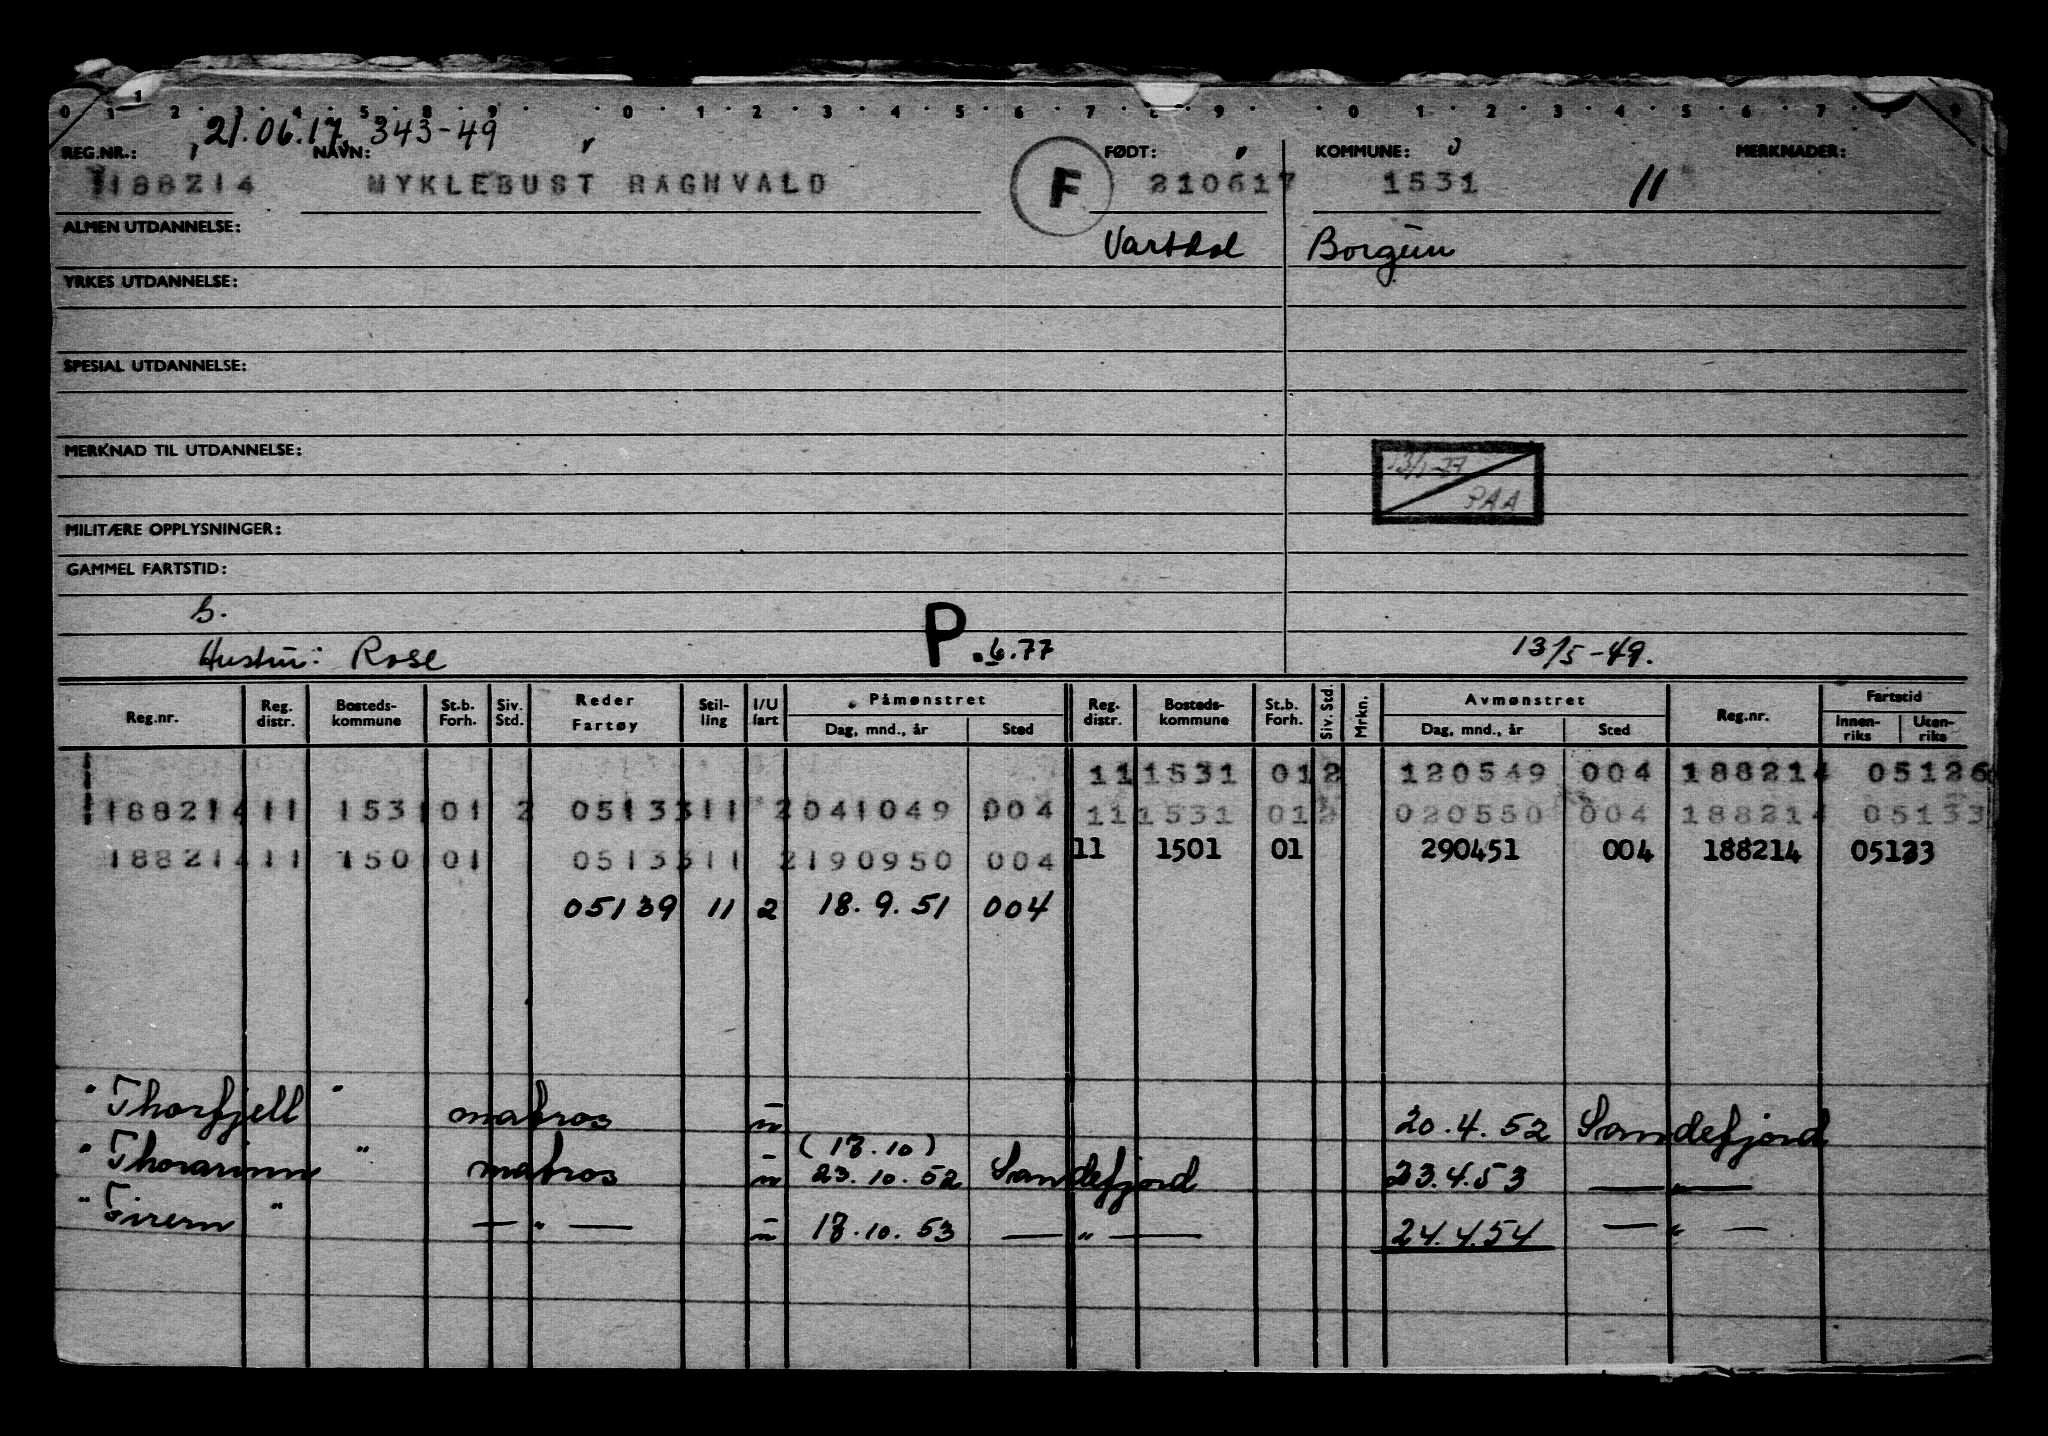 0 1 2 3 4 5 8 9 0 1 2 3 4 5 6 7 8 9 0 1 2 3 4 5 6 7 8 9
21.06.17. 343-49
REG.NR.: NAVN: FØDT: KOMMUNE: MERKNADER:
188214 MYKLEBUST RAGNVALD F 210617 1531 11
ALMEN UTDANNELSE: Vartdal Borgun
YRKES UTDANNELSE:
SPESIAL UTDANNELSE:
MERKNAD TIL UTDANNELSE:
13/1-77
PAA
MILITÆRE OPPLYSNINGER:
GAMMEL FARTSTID:
S.
Hustru: Rose P. 6.77 13/5-49.
Reg.nr. Reg. distr. Bosteds-kommune St.b. Forh. Siv. Std. Reder Fartøy Stil-ling I/U fart Påmønstret Dag, mnd., år Sted Reg. distr. Bosteds-kommune St.b. Forh. Siv. Std. Mrkn. Avmønstret Dag, mnd., år Sted Reg.nr. Fartstid Innen-riks Uten-riks
11 1531 01 2 120549 004 188214 05126
188214 11 1531 01 2 05133 11 2 041049 004 11 1531 01 2 020550 004 188214 05133
188214 11 1501 01 05133 11 2 190950 004 11 1501 01 290451 004 188214 05133
05139 11 2 18.9.51 004
" Thorfjell " matros ū 20.4.52 Sandefjord
(17.10)
" Thorarinn " matros ū 23.10.52 Sandefjord 23.4.53 — " —
" Tirern " — " — ū 17.10.53 — " — 24.4.54 — " —